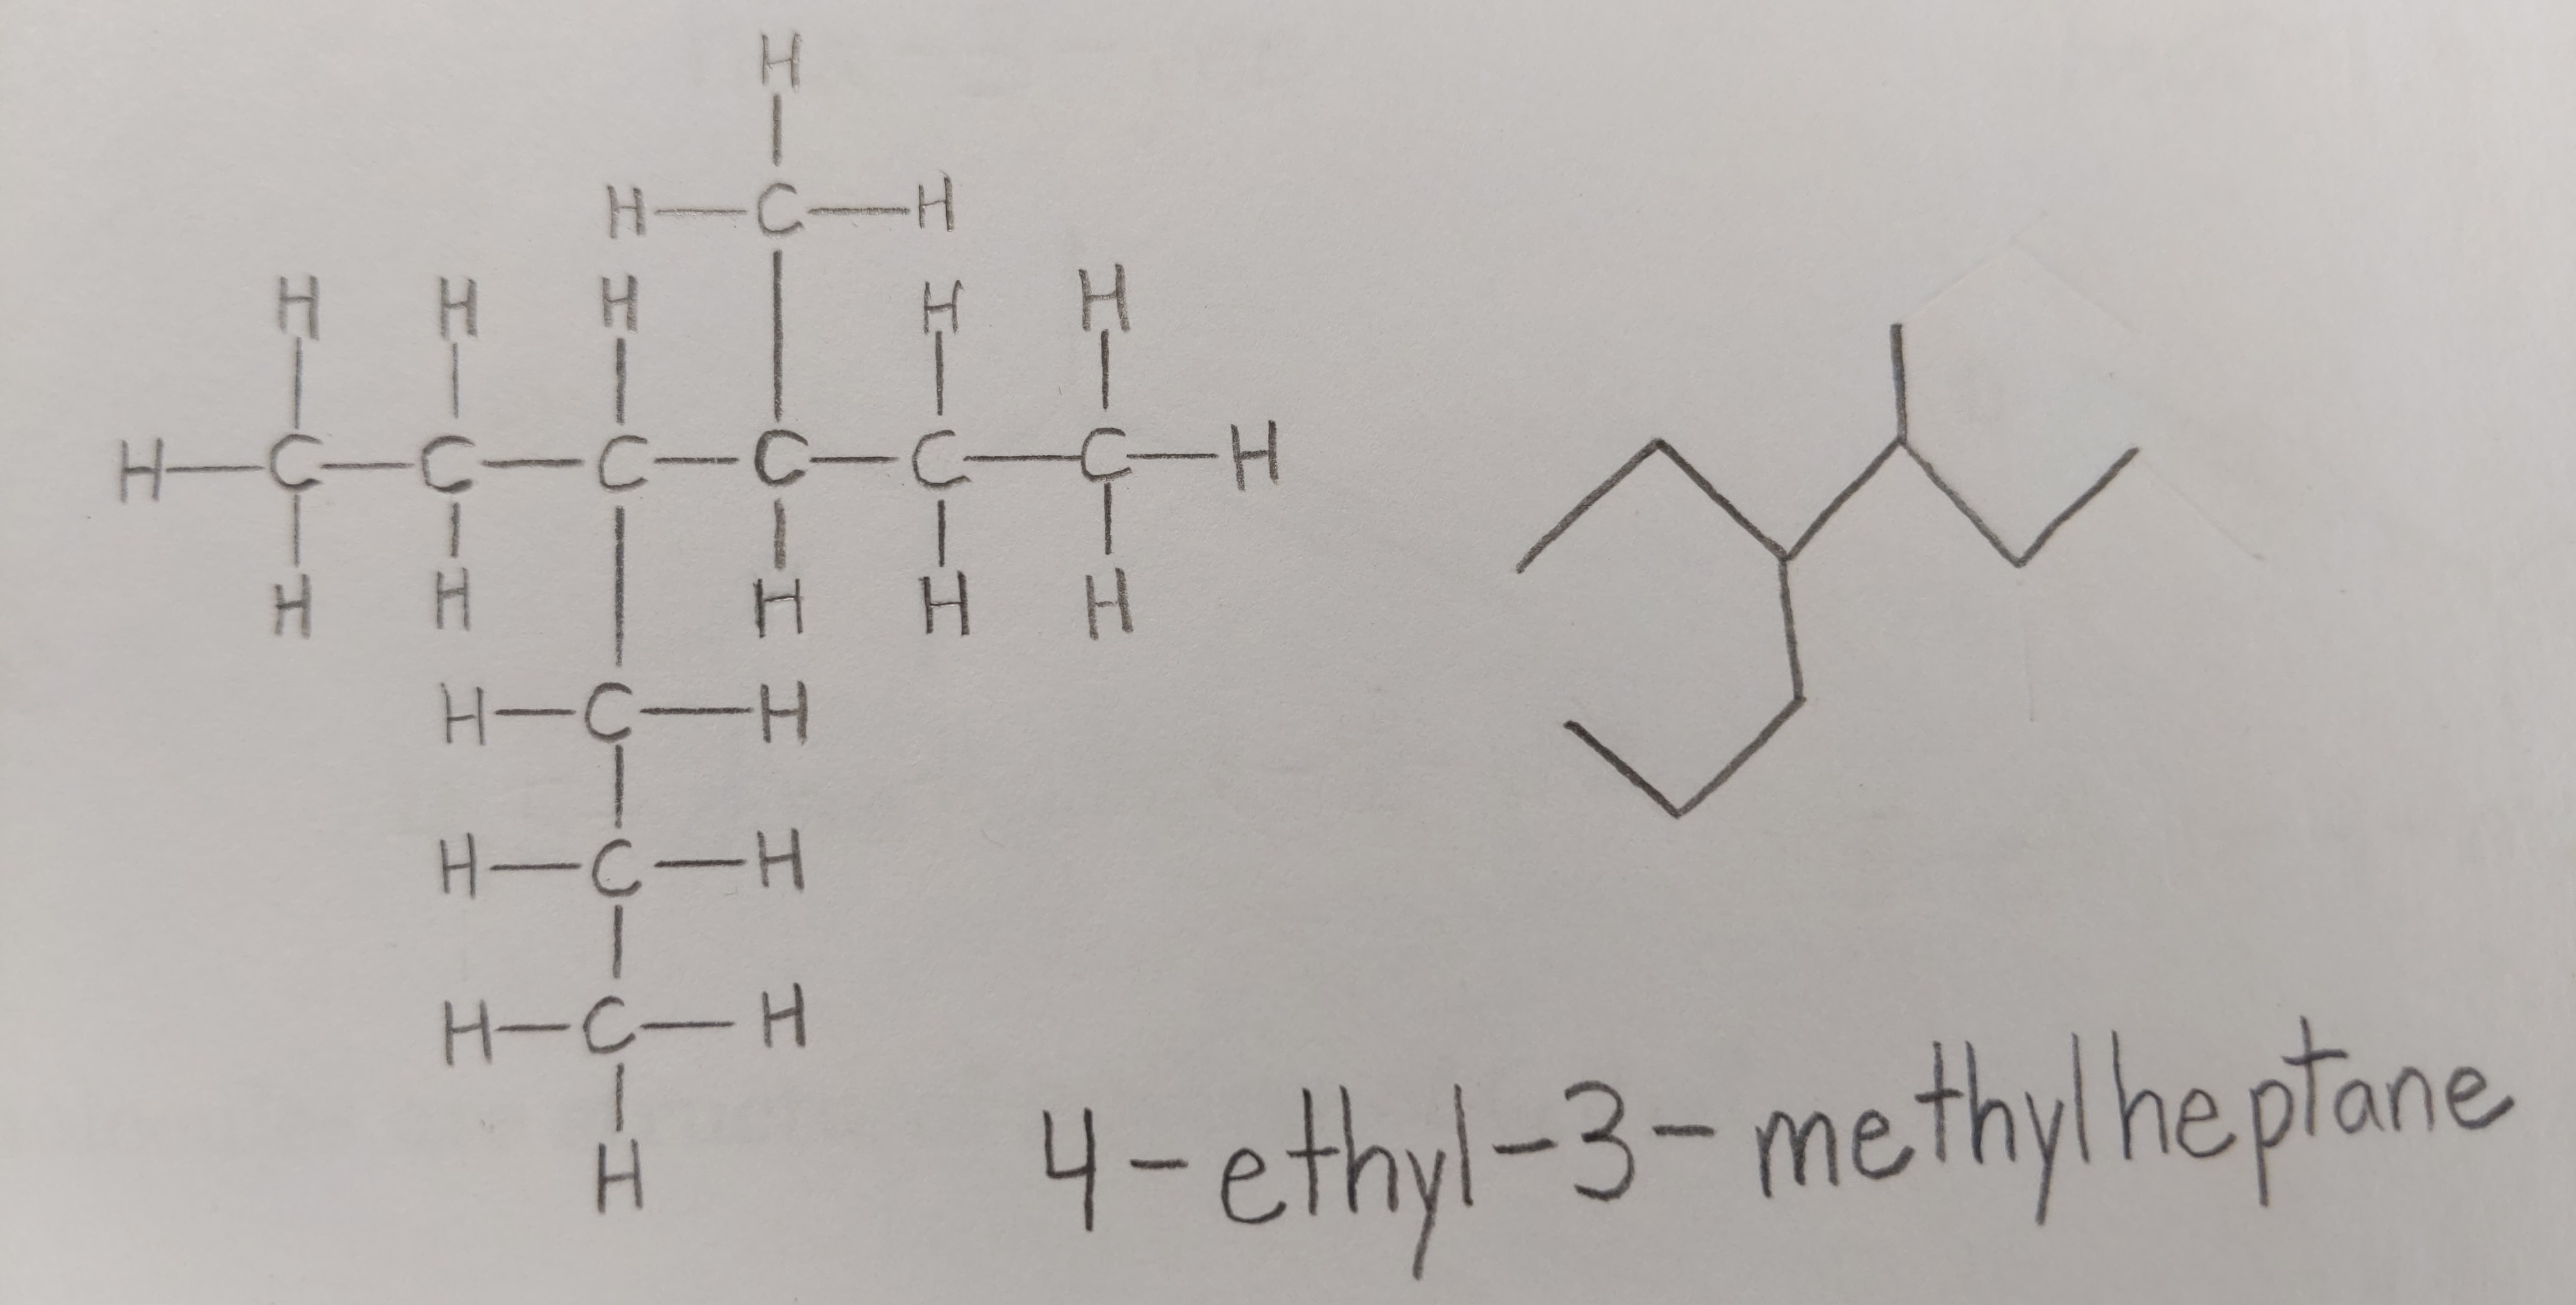 H
H—C—H
H H H H H
H—C—C—C—C—C—C—H
H H H H H
H—C—H
H—C—H
H—C—H
H
4-ethyl-3-methylheptane